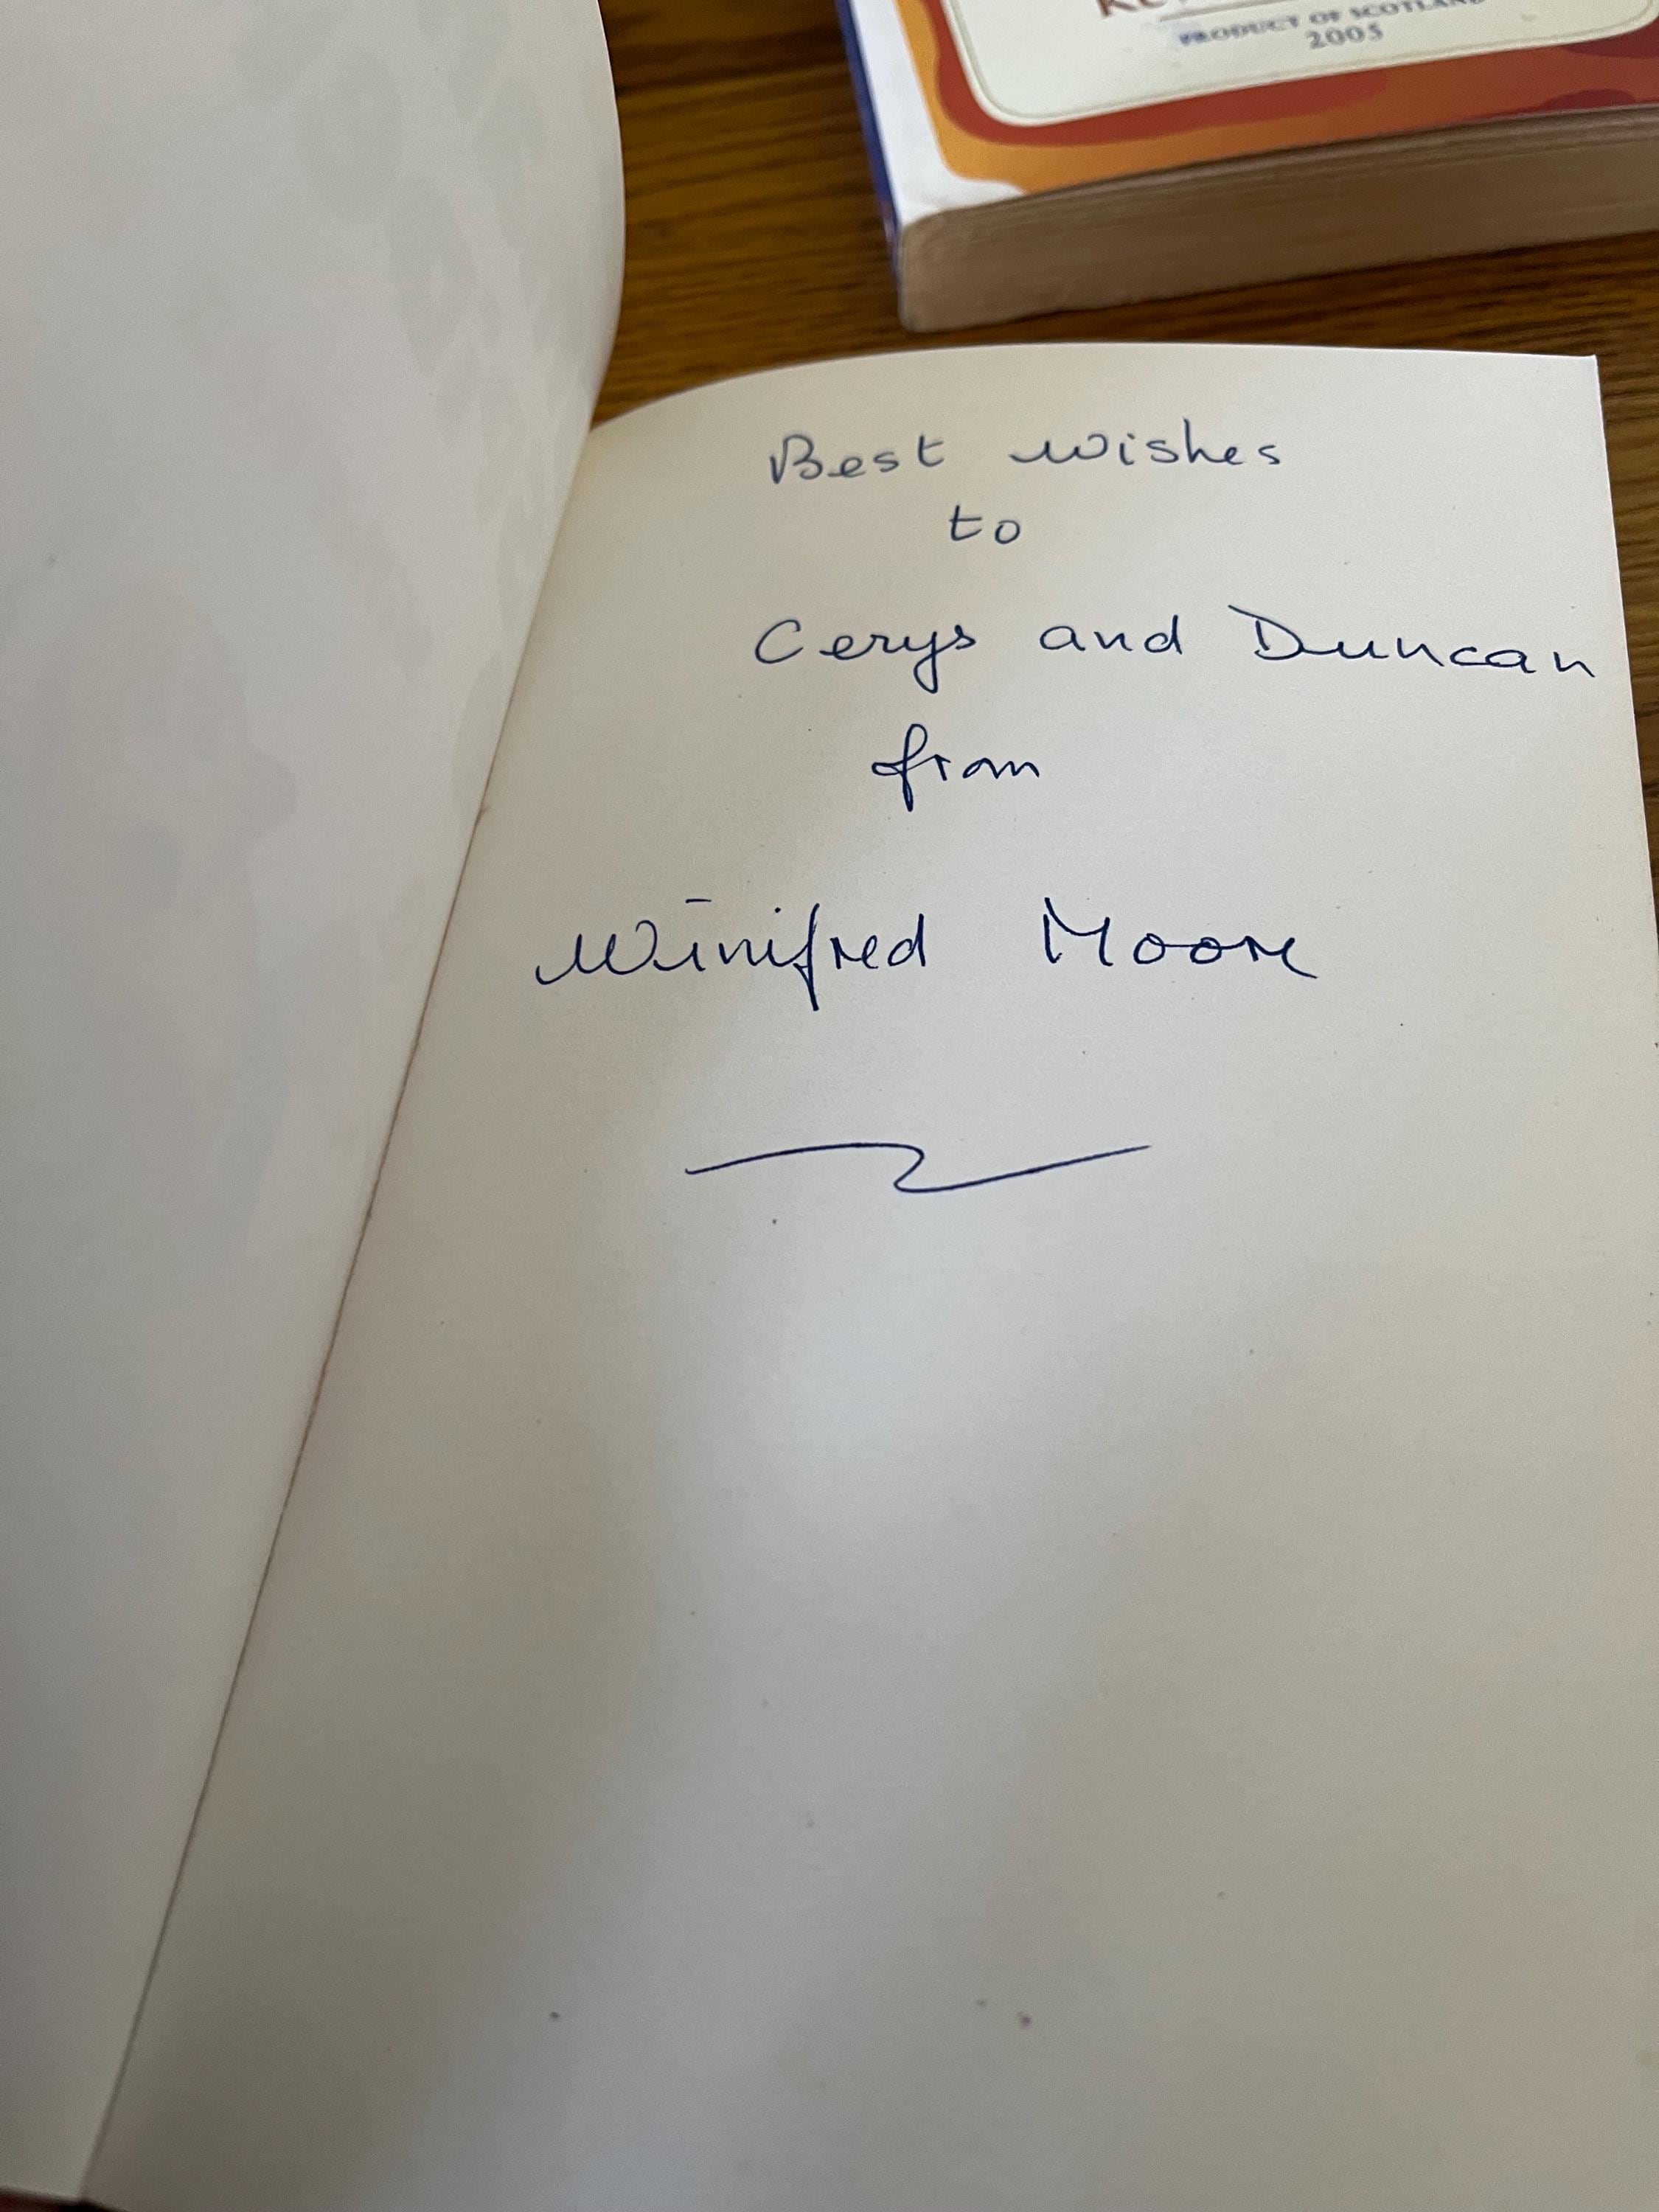 PRODUCT OF SCOTLAND
2005
Best wishes
to
Cerys and Duncan
from
Winifred Moore